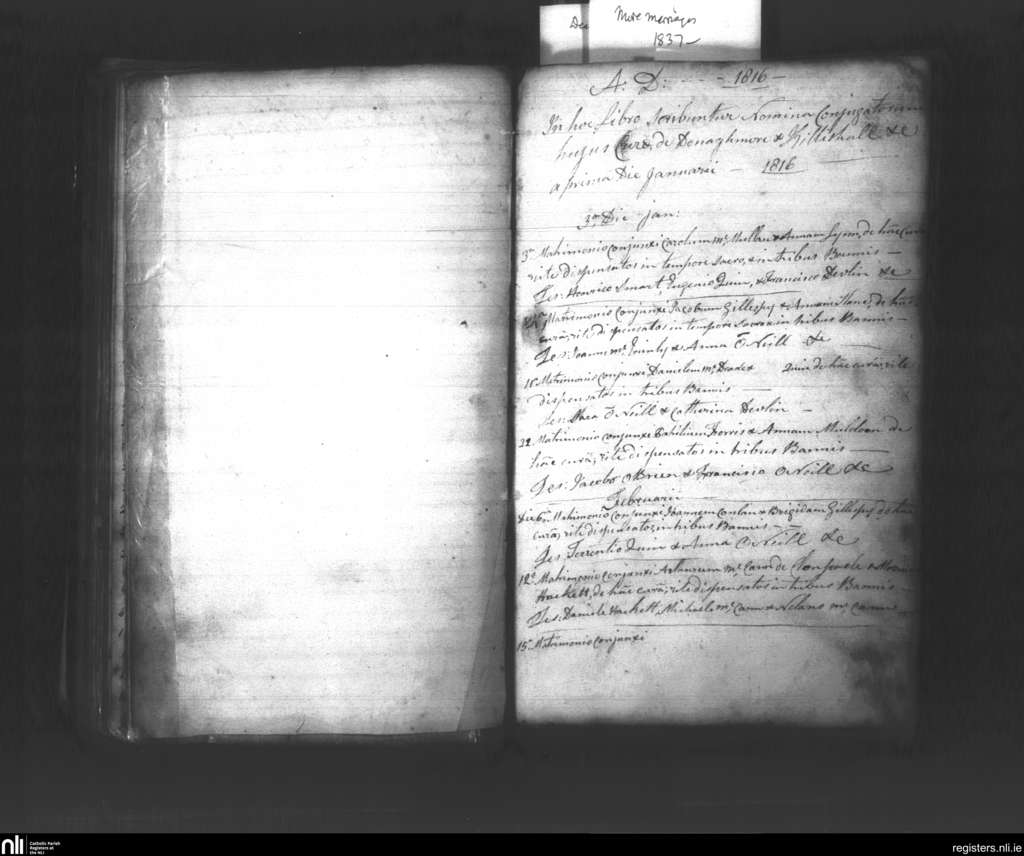 More marriages
1837
A: D: 1816
In hoc Libro scribuntur Nomina Conjugatorum
hujus Curæ, de Donaghmore & Killishall &c
a prima Die Januarii — 1816
3a Die Jan:
3a Matrimonio conjunxi Carolum Mc Mullan & Annam Lynn, de hâc Cura
rite dispensatos in tempore sacro, & in tribus Bannis —
Tes: Henrico Smart Eugenio Quin, & Francisco Devlin &c
Matrimonio conjunxi Jacobum Gillespy & Annam de hâc
curâ, rite dispensatos in tempore sacro & in tribus Bannis —
Tes: Joanne Mc & Anna O Neill &c
Matrimonio conjunxi Danielem Mc & Quin de hâc curâ, rite
dispensatos in tribus Bannis —
Tes: O Neill & Catherina Devlin —
22 Matrimonio conjunxi & Annam Muldoon de
hâc curâ, rite dispensatos in tribus Bannis —
Tes: Jacobo OBrien & Francisco O Neill &c
Februarii
Die 6a Matrimonio conjunxi Joannem Conlan & Brigidam Gillespy de hâc
curâ, rite dispensatos, in tribus Bannis —
Tes: Terrentio Quin & Anna O Neill &c
12a Matrimonio conjunxi Arthurum Mc Cann de Clonfeacle &
Hackett, de hâc curâ, rite dispensatos in tribus Bannis
Tes: Daniele Hackett, Michaele Mc Cann & Mc Cann —
15a Matrimonio conjunxi
nli
Catholic Parish
Registers at
the NLI
registers.nli.ie